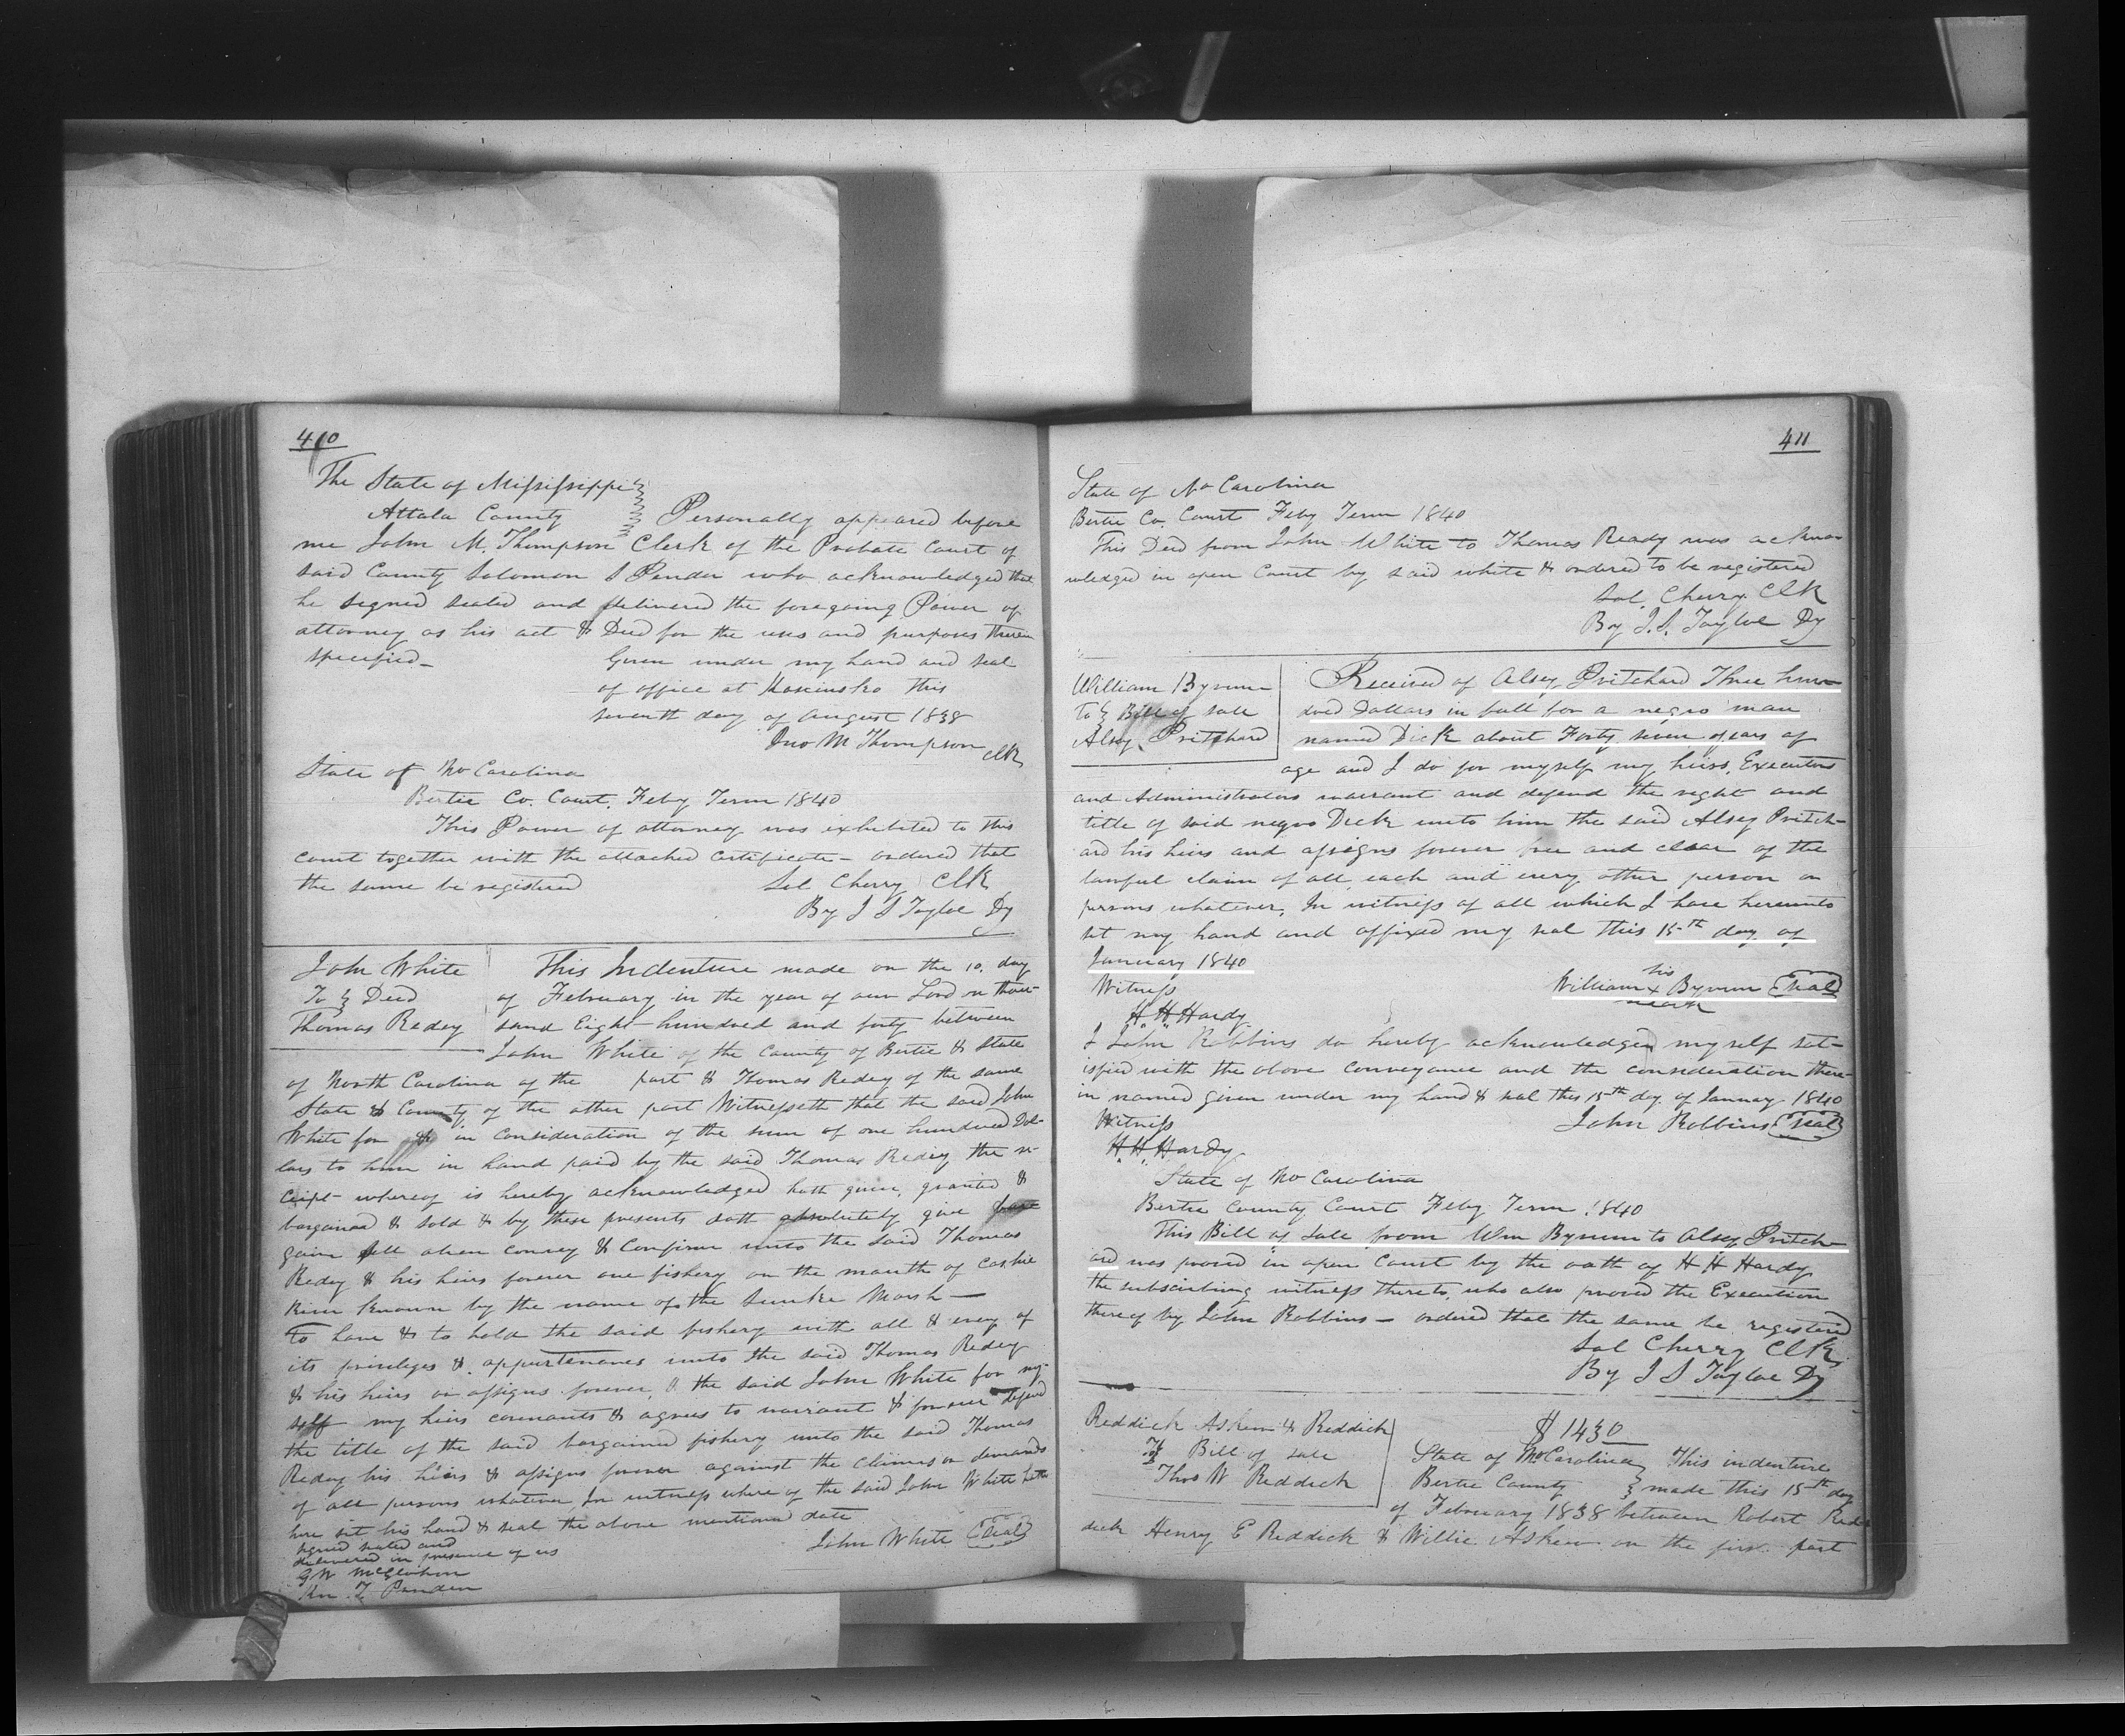 410
The State of Mississippi
Attala County Personally appeared before
me John M. Thompson Clerk of the Probate Court of
said County Solomon S Pender who acknowledged that
he signed sealed and delivered the foregoing Power of
attorney as his act & Deed for the uses and purposes therein
specified—
Given under my hand and seal
of office at Kosciusko this
seventh day of August 1838
Jno M Thompson clk
State of No Carolina
Bertie Co. Court, Feby Term 1840
This Power of attorney was exhibited to this
court together with the attached certificate — ordered that
the same be registered
Sol Cherry Clk
By J S Tayloe Dy
John White
To Deed
Thomas Redey
This Indenture made on the 10. day
of February in the year of our Lord on thou-
sand Eight hundred and forty between
John White of the County of Bertie & State
of North Carolina of the part & Thomas Redey of the same
State & County of the other part Witnesseth that the said John
White for & in consideration of the sum of one hundred Dol-
lars to him in hand paid by the said Thomas Redey the re-
ceipt whereof is hereby acknowledged hath given, granted &
bargained & sold & by these presents doth absolutely give bar
gain sell alien convey & confirm unto the said Thomas
Redey & his heirs forever one fishery on the mouth of Cashie
River known by the name of the Sunke Marsh —
To have & to hold the said fishery with all & every of
its privileges & appurtenances unto the said Thomas Redey
& his heirs or assigns forever, & the said John White for my-
self my heirs covenants & agrees to warrant & forever defend
the title of the said bargained fishery unto the said Thomas
Redey his heirs & assigns forever against the claims or demands
of all persons whatever In witness where of the said John White hath
here set his hand & seal the above mentioned date
signed sealed and
delivered in presence of us
John White Seal
G W McGlaohon
411
State of No Carolina
Bertie Co. Court Feby Term 1840
This Deed from John White to Thomas Ready was ackno
wledged in open Court by said white & ordered to be registered
Sol. Cherry Clk
By J. S. Tayloe Dy
William Bynum
To Bill of sale
Alsey Pritchard
Received of Alsey Pritchard Three hun-
dred Dollars in full for a negro man
named Dick about Forty seven years of
age and I do for myself my heirs, Executors
and Administrators warrant and defend the right and
title of said negro Dick unto him the said Alsey Pritch-
ard his heirs and assigns forever free and clear of the
lawful claim of all each and every other person or
persons whatever, In witness of all which I have hereunto
set my hand and affixed my seal this 15th day of
January 1840
Witness
H. H. Hardy
his
William x Bynum Seal
mark
I John Robbins do hereby acknowledged myself sat-
isfied with the above conveyance and the consideration there-
in named given under my hand & seal this 15th day of January 1840
Witness
John Robbins Seal
H. H. Hardy
State of No Carolina
Bertie County Court Feby Term 1840
This Bill of Sale from Wm Bynum to Alsey Pritch
ard was proved in open Court by the oath of H H Hardy
the subscribing witness thereto, who also proved the Execution
thereof by John Robbins — ordered that the same be registered
Sol Cherry Clk
By J S Tayloe Dy
Reddick Askew & Reddick
To Bill of sale
Thos W Reddick
$1430
State of No Carolina This indenture
Bertie County made this 15th day
of February 1838 between Robert Red
dick Henry E Reddick & Willie Askew on the first part